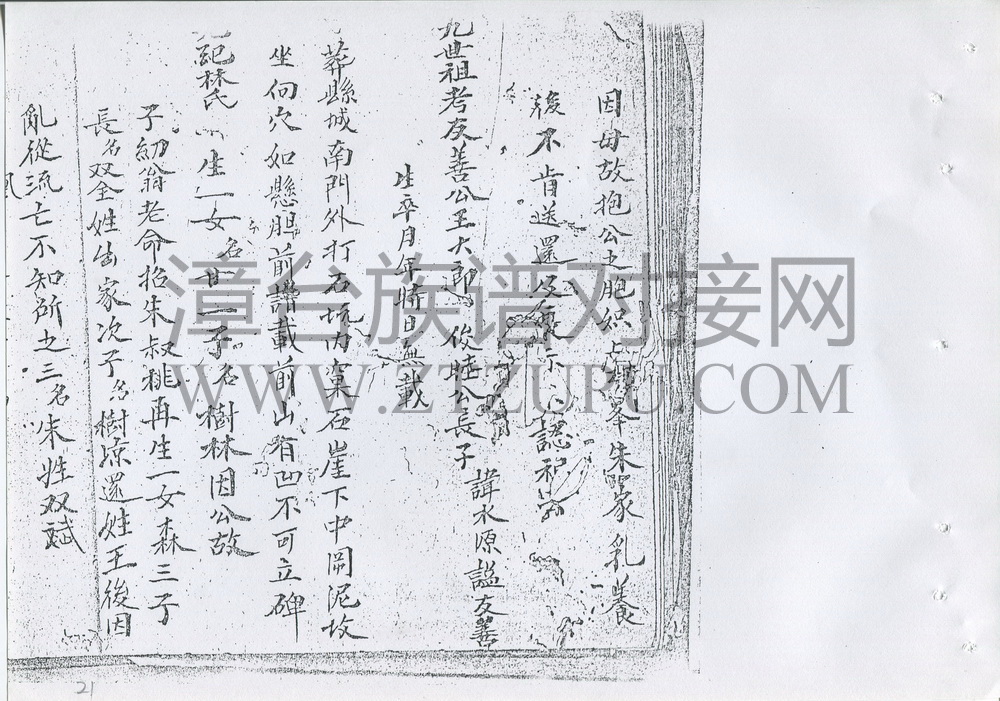 因母故抱公之胞织上峯朱家乳養
後不肯送還 認祖
九世祖考友善公王大郎 俊睦公長子 諱水源謚友善
生卒月年時日無載
葬縣城南門外打石坑内窠石崖下中開泥坟
坐向穴如懸胆前譜載前山有凹不可立碑
妣林氏 生一女 名廿 一子名樹林因公故
子幼翁老命招朱叔祧再生一女森三子
長名双全姓出家次子名樹琼還姓王後因
亂從流亡不知所之三名朱姓双斌
漳台族谱对接网
WWW.ZTZUPU.COM
21